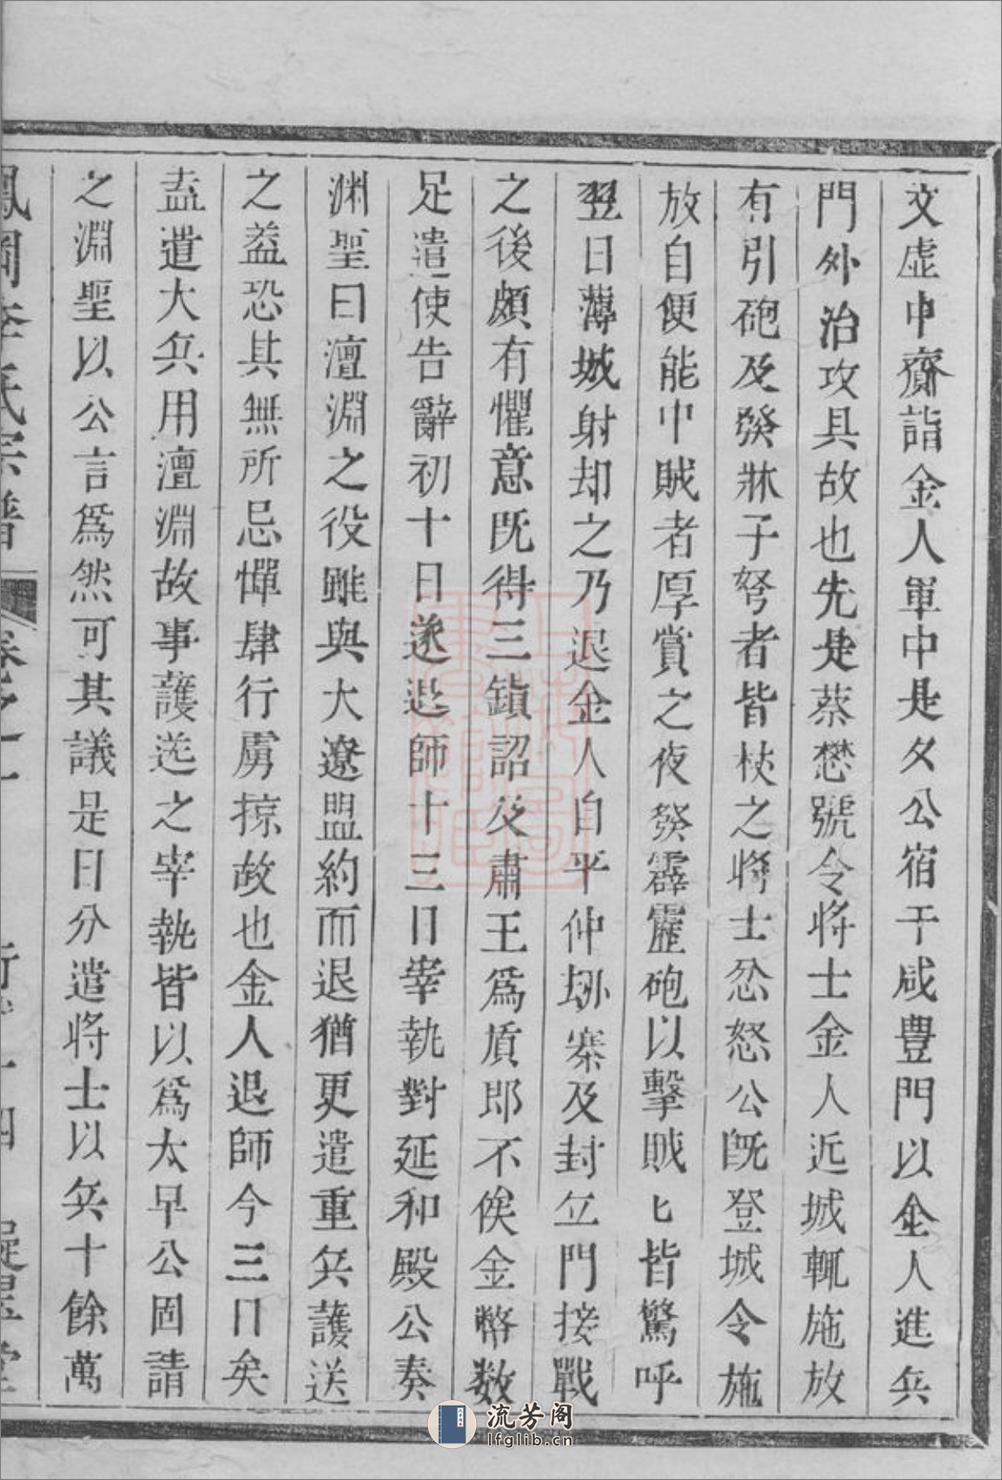 文虛中齎詣金人軍中是夕公宿于咸豊門以金人進兵
門外治攻具故也先是蔡懋號令將士金人近城輒施放
有引砲及發牀子弩者皆杖之將士忿怒公旣登城令施
放自便能中賊者厚賞之夜發霹靂砲以擊賊匕皆驚呼
翌日薄城射却之乃退金人自平仲刼寨及封丘門接戰
之後頗有懼意既得三鎮詔及肅王爲質即不俟金幣数
足遣使告辭初十日遂退師十三日宰執對延和殿公奏
渊聖曰澶淵之役雖與大遼盟約而退猶更遣重兵護送
之葢恐其無所忌憚肆行虜掠故也金人退師今三日矣
盍遣大兵用澶淵故事護送之宰執皆以爲太早公固請
之淵聖以公言爲然可其議是日分遣將士以兵十餘萬
鳳岡李氏宗譜 卷之一
流芳阁
lfglib.cn